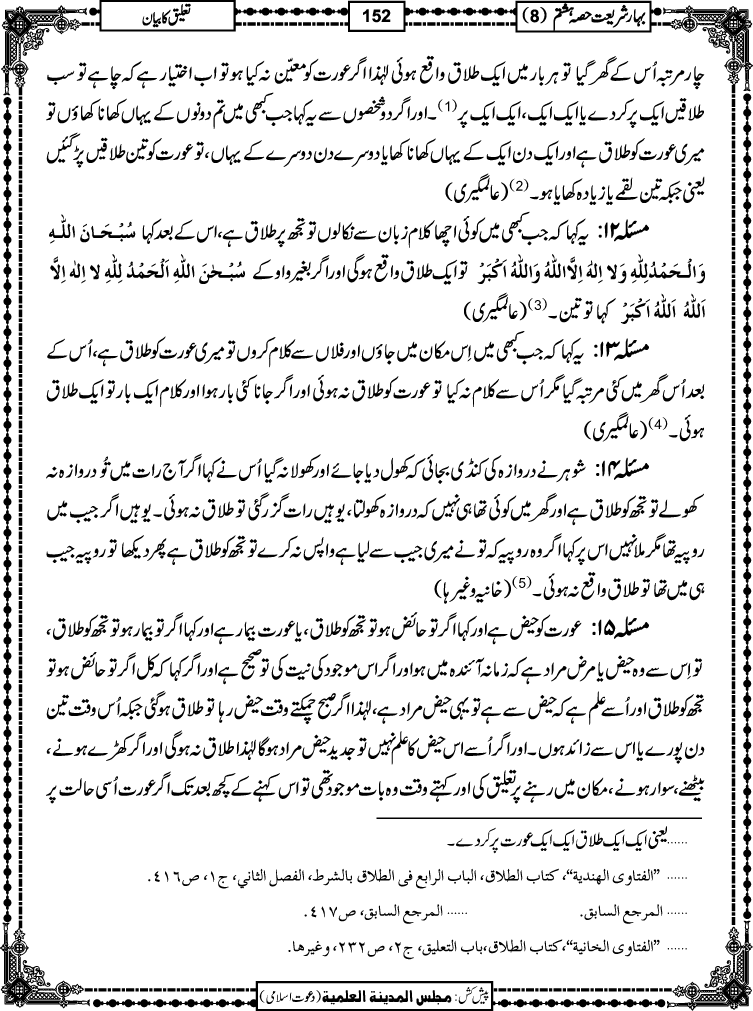 بہار شریعت حصہ ہشتم (8)
152
تعلیق کا بیان
چار مرتبہ اُس کے گھر گیا تو ہر بار میں ایک طلاق واقع ہوئی لہٰذا اگر عورت کو معیّن نہ کیا ہو تو اب اختیار ہے کہ چاہے تو سب
طلاقیں ایک پر کر دے یا ایک ایک، ایک ایک پر (1)۔ اور اگر دو شخصوں سے یہ کہا جب کبھی میں تم دونوں کے یہاں کھانا کھاؤں تو
میری عورت کو طلاق ہے اور ایک دن ایک کے یہاں کھانا کھایا دوسرے دن دوسرے کے یہاں، تو عورت کو تین طلاقیں پڑ گئیں
یعنی جبکہ تین لقمے یا زیادہ کھایا ہو۔ (2) (عالمگیری)
مسئلہ ۱۲: یہ کہا کہ جب کبھی میں کوئی اچھا کلام زبان سے نکالوں تو تجھ پر طلاق ہے، اس کے بعد کہا سُبْحَانَ اللّٰہِ
وَالْحَمْدُ لِلّٰہِ وَلَا اِلٰہَ اِلَّا اللّٰہُ وَاللّٰہُ اَکْبَرْ تو ایک طلاق واقع ہوگی اور اگر بغیر واو کے سُبْحٰنَ اللّٰہِ اَلْحَمْدُ لِلّٰہِ لَا اِلٰہَ اِلَّا
اللّٰہُ اَللّٰہُ اَکْبَرْ کہا تو تین۔ (3) (عالمگیری)
مسئلہ ۱۳: یہ کہا کہ جب کبھی میں اِس مکان میں جاؤں اور فلاں سے کلام کروں تو میری عورت کو طلاق ہے، اُس کے
بعد اُس گھر میں کئی مرتبہ گیا مگر اُس سے کلام نہ کیا تو عورت کو طلاق نہ ہوئی اور اگر جانا کئی بار ہوا اور کلام ایک بار تو ایک طلاق
ہوئی۔ (4) (عالمگیری)
مسئلہ ۱۴: شوہر نے دروازہ کی کنڈی بجائی کہ کھول دیا جائے اور کھولا نہ گیا اُس نے کہا اگر آج رات میں تُو دروازہ نہ
کھولے تو تجھ کو طلاق ہے اور گھر میں کوئی تھا ہی نہیں کہ دروازہ کھولتا، یوہیں رات گزر گئی تو طلاق نہ ہوئی۔ یوہیں اگر جیب میں
روپیہ تھا مگر ملا نہیں اس پر کہا اگر وہ روپیہ کہ تو نے میری جیب سے لیا ہے واپس نہ کرے تو تجھ کو طلاق ہے پھر دیکھا تو روپیہ جیب
ہی میں تھا تو طلاق واقع نہ ہوئی۔ (5) (خانیہ وغیرہا)
مسئلہ ۱۵: عورت کو حیض ہے اور کہا اگر تو حائض ہو تو تجھ کو طلاق، یا عورت بیمار ہے اور کہا اگر تو بیمار ہو تو تجھ کو طلاق،
تو اِس سے وہ حیض یا مرض مراد ہے کہ زمانہ آئندہ میں ہو اور اگر اس موجود کی نیت کی تو صحیح ہے اور اگر کہا کہ کل اگر تو حائض ہو تو
تجھ کو طلاق اور اُسے علم ہے کہ حیض سے ہے تو یہی حیض مراد ہے، لہٰذا اگر صبح چمکتے وقت حیض رہا تو طلاق ہوگئی جبکہ اُس وقت تین
دن پورے یا اس سے زائد ہوں۔ اور اگر اُسے اس حیض کا علم نہیں تو جدید حیض مراد ہوگا لہٰذا طلاق نہ ہوگی اور اگر کھڑے ہونے،
بیٹھنے، سوار ہونے، مکان میں رہنے پر تعلیق کی اور کہتے وقت وہ بات موجود تھی تو اس کہنے کے کچھ بعد تک اگر عورت اُسی حالت پر
...... یعنی ایک ایک طلاق ایک ایک عورت پر کر دے۔
...... ”الفتاوی الهندية“، كتاب الطلاق، الباب الرابع فی الطلاق بالشرط، الفصل الثاني، ج١، ص٤١٦.
...... المرجع السابق. ...... المرجع السابق، ص٤١٧.
...... ”الفتاوی الخانية“، كتاب الطلاق، باب التعليق، ج٢، ص٢٣٢، وغيرها.
پیش کش: مجلس المدينة العلمية (دعوت اسلامی)